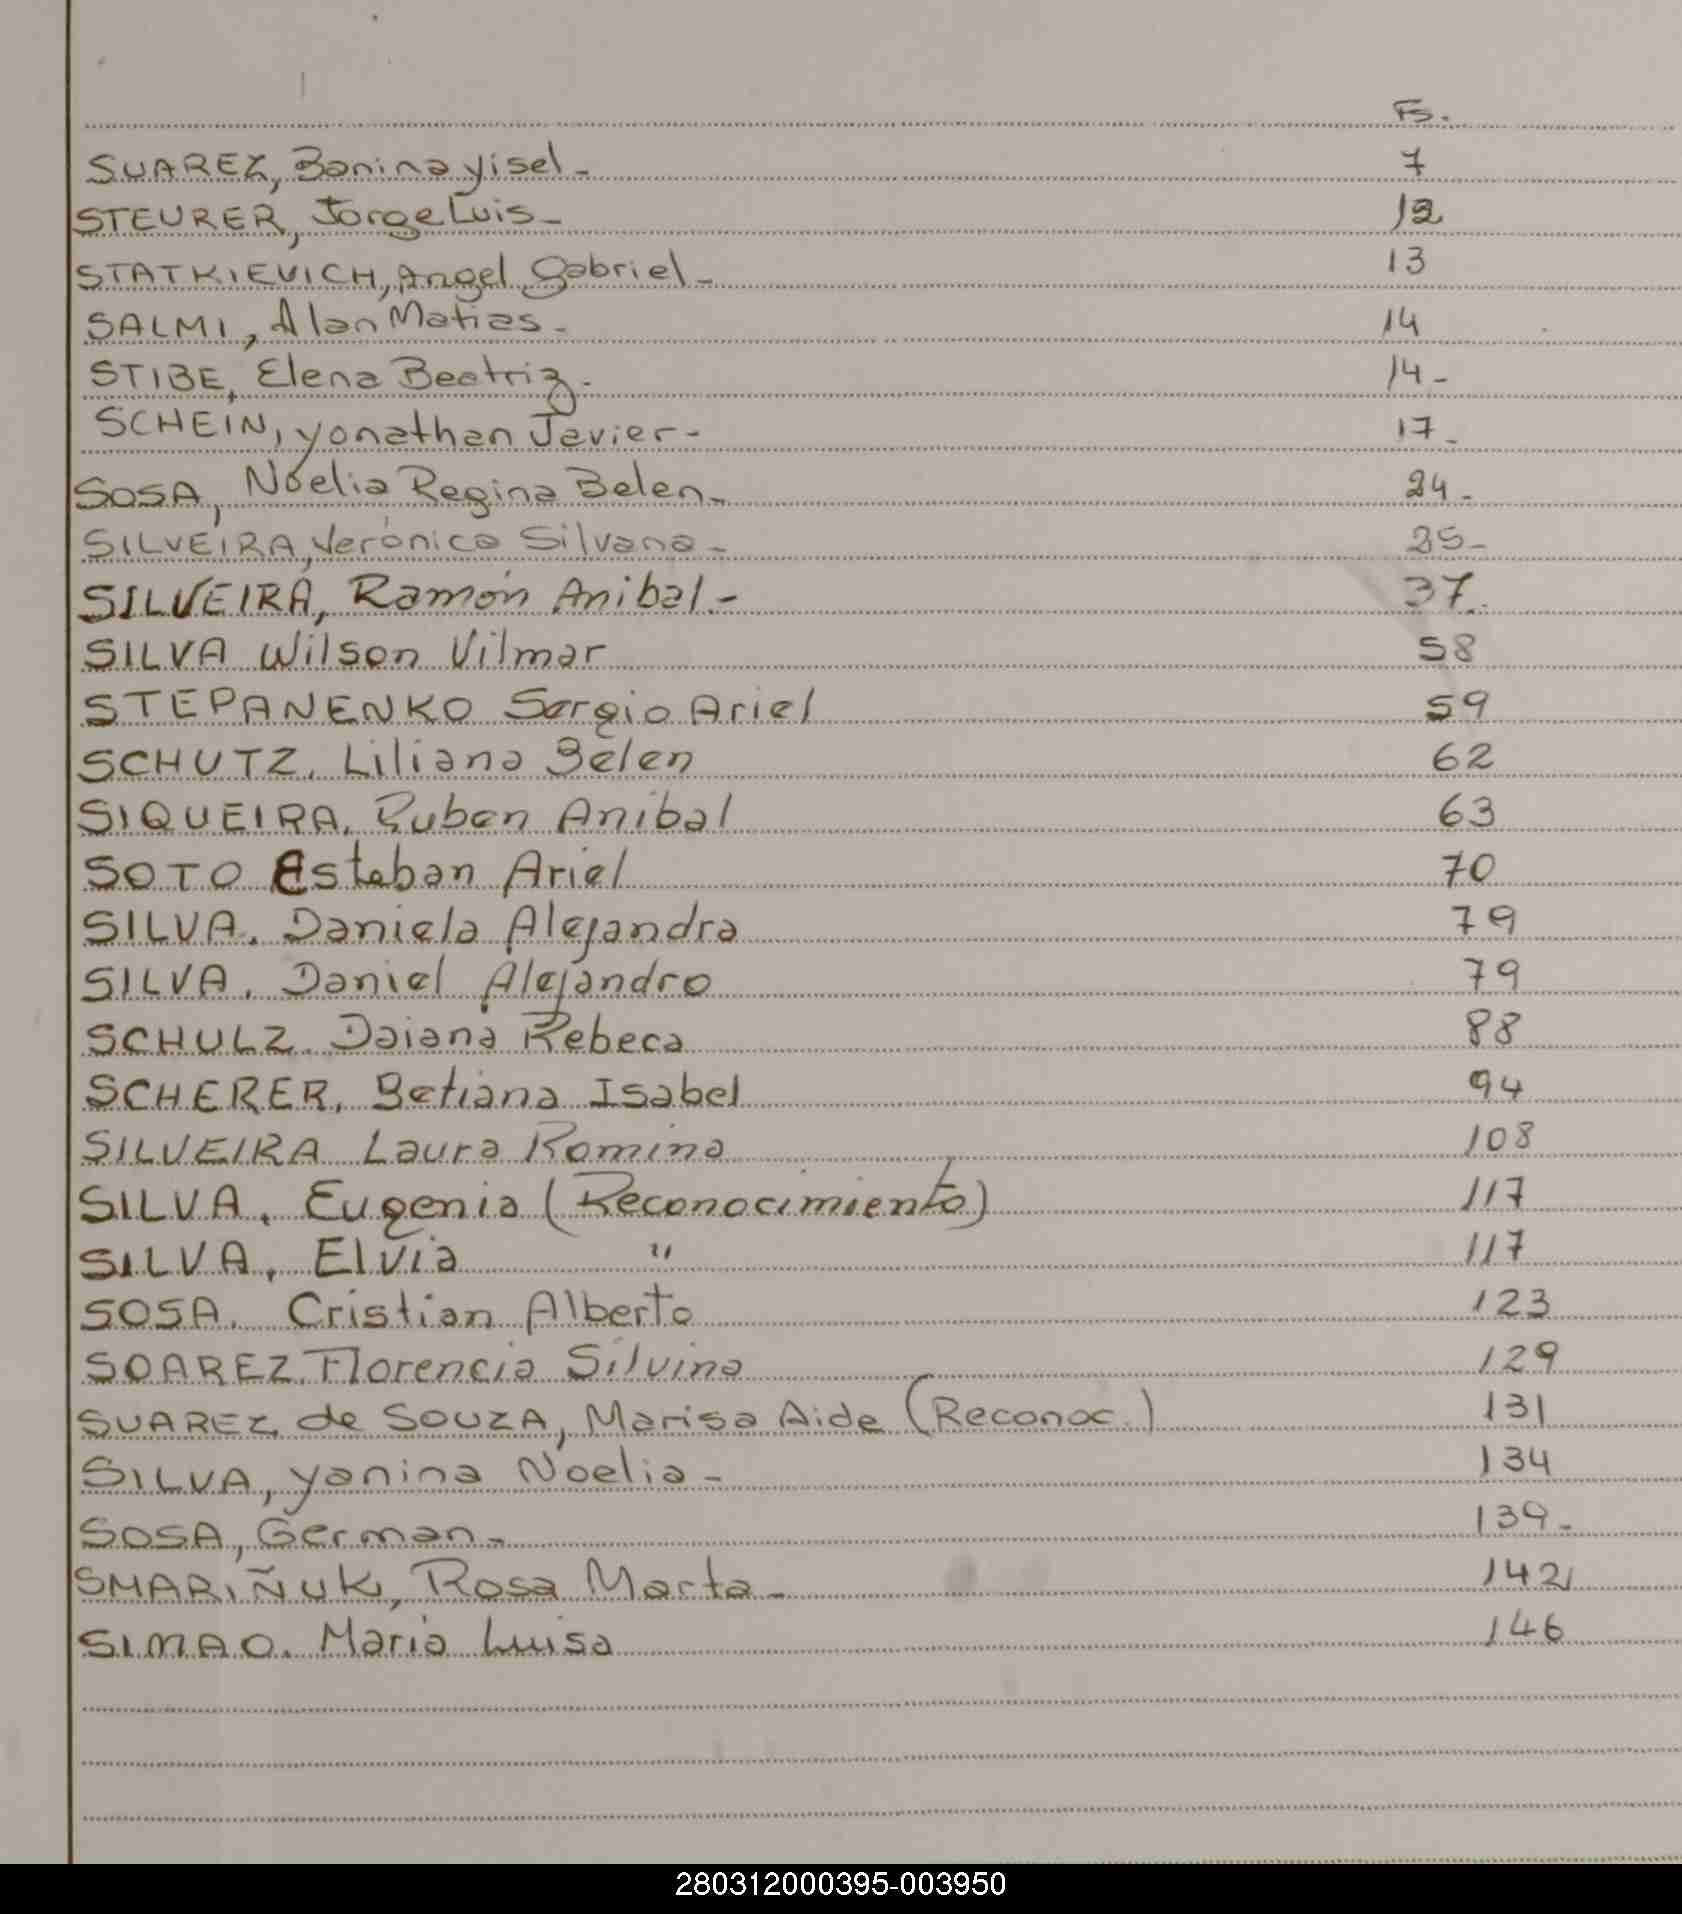 Fs.
SUAREZ, Banina yisel- 7
STEURER, Jorge Luis- 12
STATKIEVICH, Angel Gabriel- 13
SALMI, Alan Matias- 14
STIBE, Elena Beatriz- 14-
SCHEIN, yonathan Javier- 17-
SOSA, Noelia Regina Belen- 24-
SILVEIRA, Verónica Silvana- 25-
SILVEIRA, Ramón Anibal- 37-
SILVA Wilson Vilmar 58
STEPANENKO Sergio Ariel 59
SCHUTZ. Liliana Belen 62
SIQUEIRA. Ruben Anibal 63
SOTO Esteban Ariel 70
SILVA. Daniela Alejandra 79
SILVA. Daniel Alejandro 79
SCHULZ. Daiana Rebeca 88
SCHERER. Betiana Isabel 94
SILVEIRA Laura Romina 108
SILVA. Eugenia (Reconocimiento) 117
SILVA. Elvia " 117
SOSA. Cristian Alberto 123
SOAREZ. Florencia Silvina 129
SUAREZ de SOUZA, Marisa Aide (Reconoc.) 131
SILVA, yanina Noelia- 134
SOSA, German- 139-
SMARIÑUK, Rosa Marta- 142
SIMAO. Maria Luisa 146
280312000395-003950